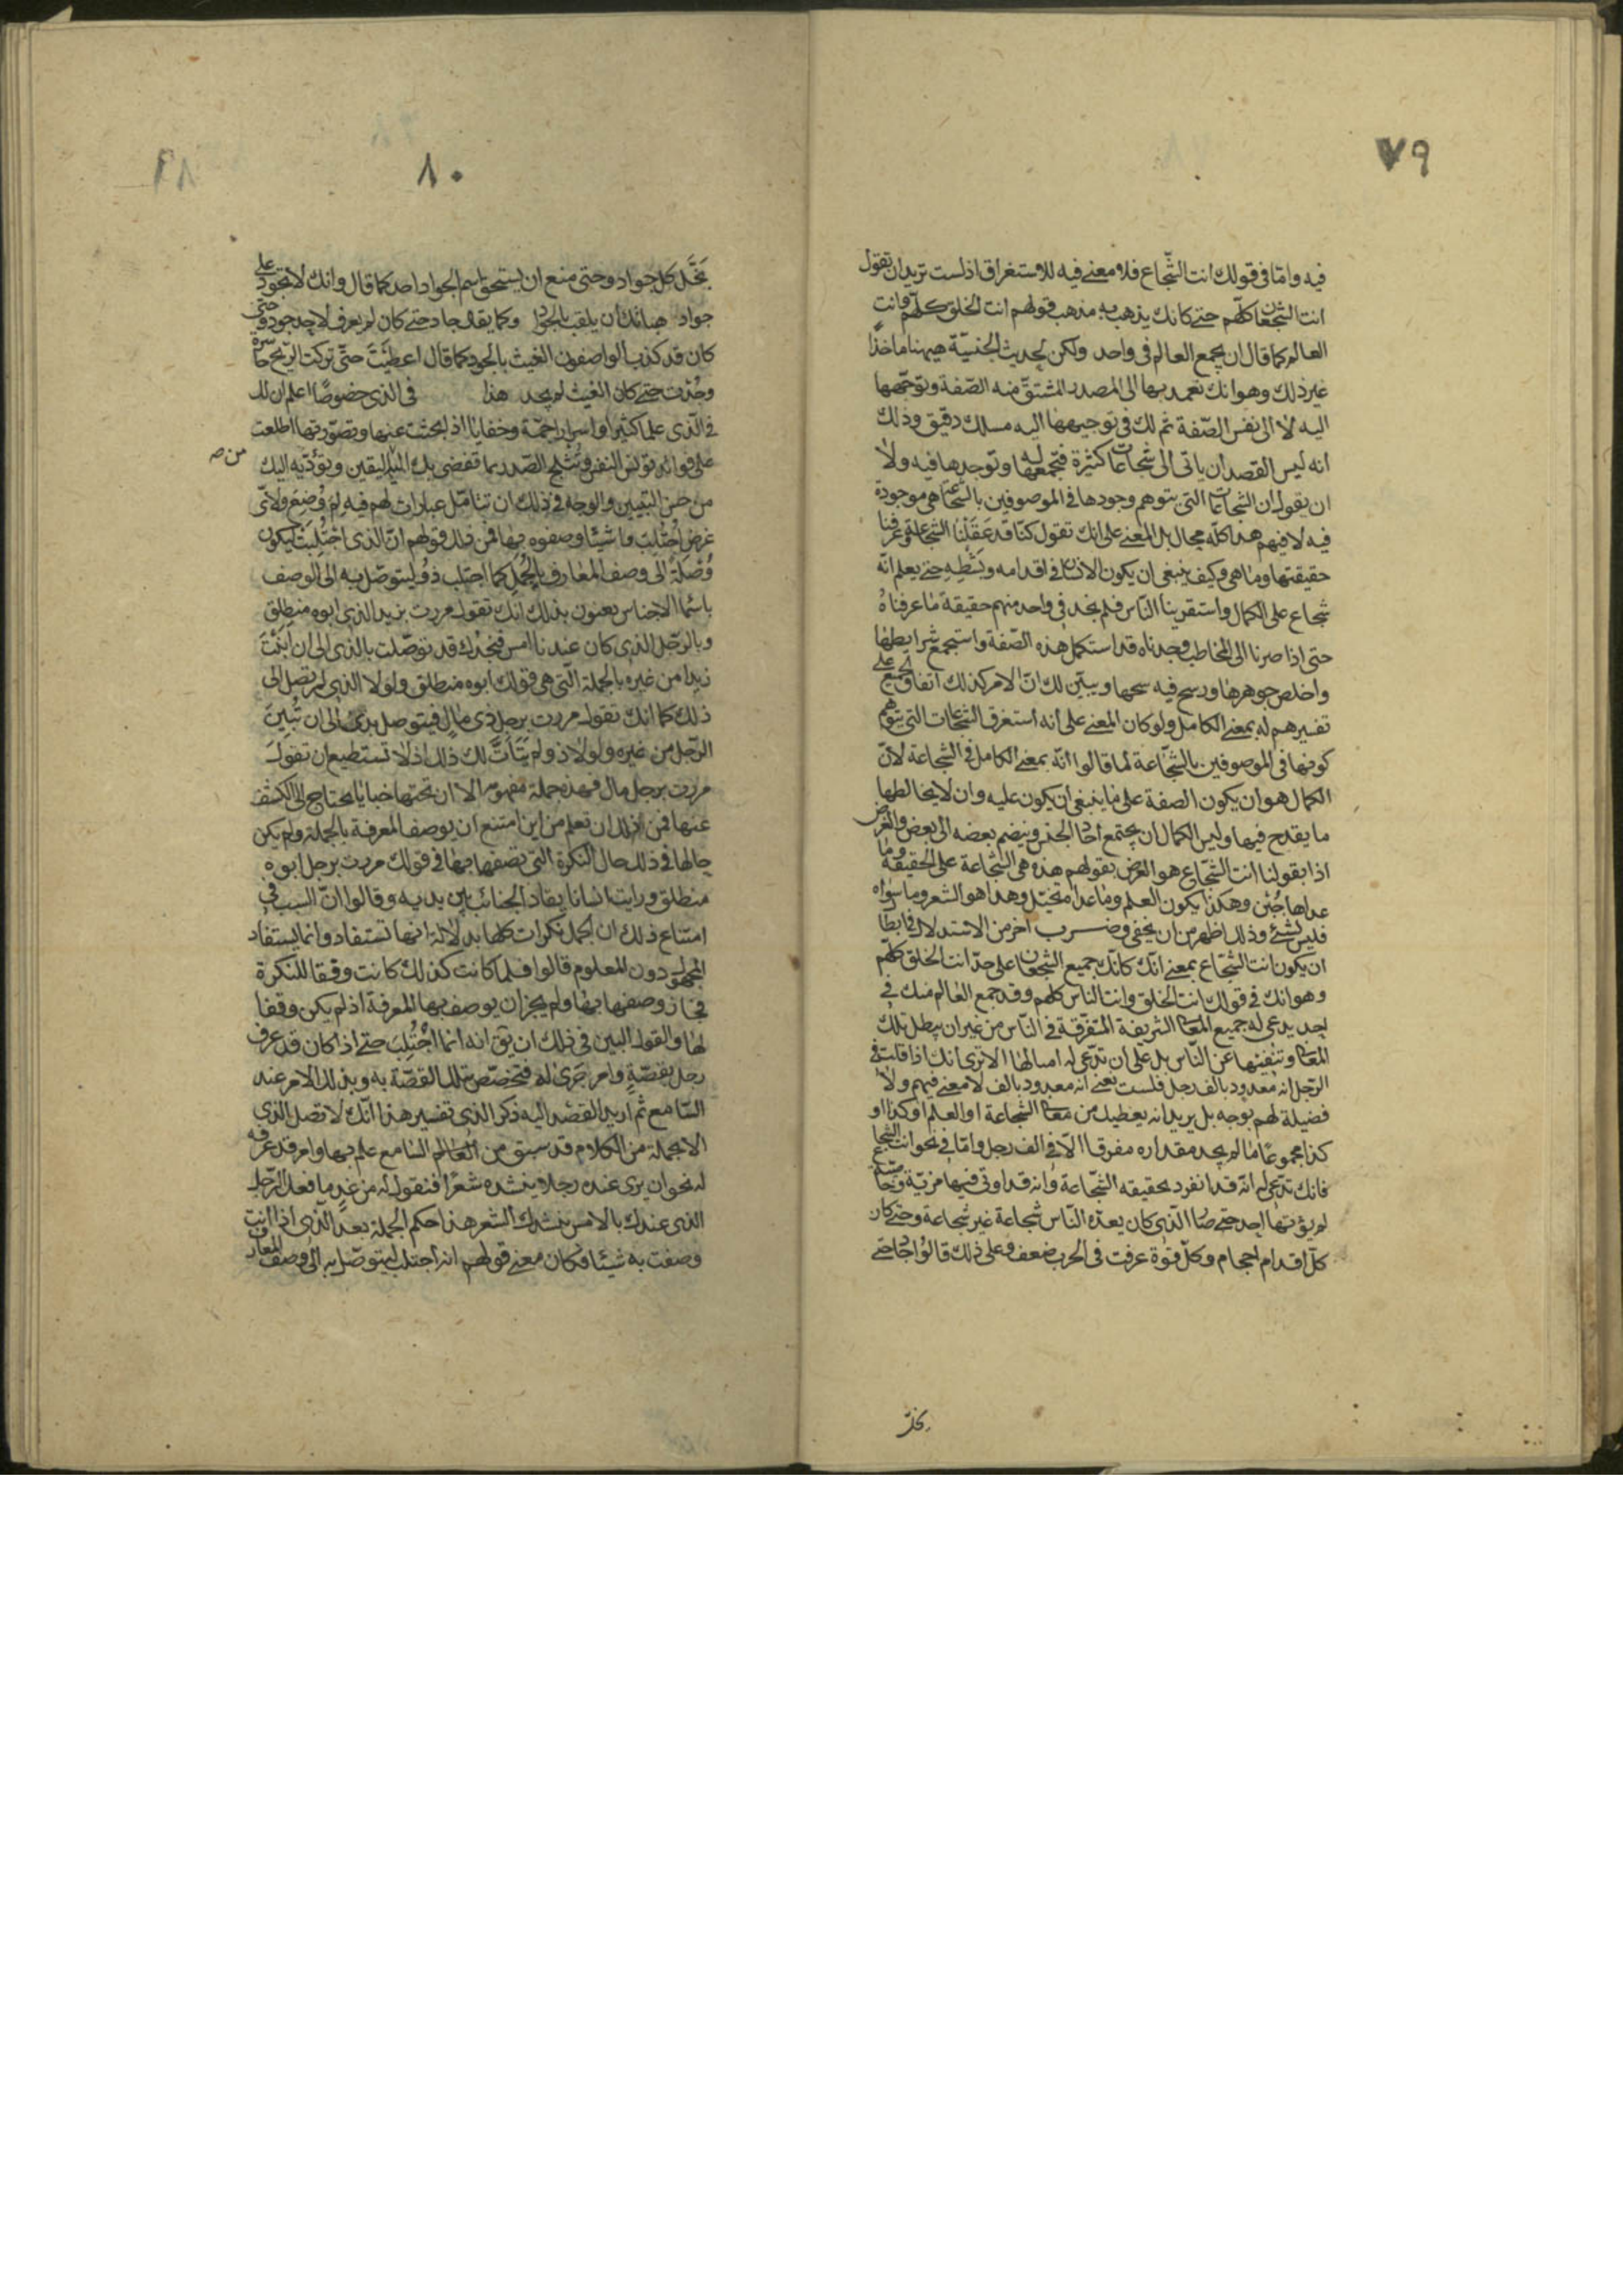 ٧٩
فيه واما في قولك انت الشجاع فلا معنى فيه للاستغراق اذ لست تريد ان تقول
انت الشجعان كلهم حتى كانك يذهب به مذهب قولهم انت الخلق كلهم وانت
العالم كما قال ان يجمع العالم في واحد ولكن لحديث الجنسية ههنا ماخذا
غير ذلك وهو انك تعمد بها الى المصدر المشتق منه الصفة وتوجهها
اليه لا الى نفس الصفة ثم لك في توجيهها اليه مسلك دقيق وذلك
انه ليس القصد ان ياتي الى شجاعات كثيرة فتجمعها له وتوجدها فيه ولا
ان يقول ان الشجاعات التي يتوهم وجودها في الموصوفين بالشجاعة هي موجودة
فيه لا فيهم هذا كله محال بل المعنى على انك تقول كنا قد عقلنا الشجاعة وعرفنا
حقيقتها وما هي وكيف ينبغي ان يكون الانسان في اقدامه وبطشه حتى يعلم انه
شجاع على الكمال واستقرينا الناس فلم نجد في واحد منهم حقيقة ما عرفناه
حتى اذا صرنا الى المخاطب وجدناه قد استكمل هذه الصفة واستجمع شرايطها
واخلص جوهرها ورسخ فيه سنخها ويبين لك ان الامر كذلك اتفاق الجميع على
تفسيرهم له بمعنى الكامل ولو كان المعنى على انه استغرق الشجاعات التي يتوهم
كونها في الموصوفين بالشجاعة لما قالوا انه بمعنى الكامل في الشجاعة لان
الكمال هو ان يكون الصفة على ما ينبغي ان يكون عليه وان لا يخالطها
ما يقدح فيها وليس الكمال ان يجتمع احاد الجنس وينضم بعضه الى بعض والغرض
اذا بقولنا انت الشجاع هو الغرض بقولهم هذه هي الشجاعة على الحقيقة وما
عداها جبن وهكذا يكون العلم وما عداه تخيل وهذا هو الشعر وما سواه
فليس بشئ وذلك اظهر من ان يخفى وضرب اخر من الاستدلال في ابطال
ان يكون انت الشجاع بمعنى انك كانك جميع الشجعان على حد انت الخلق كلهم
وهو انك في قولك انت الخلق وانت الناس كلهم وقد جمع العالم منك في
احد يدعي له جميع المعاني الشريفة المتفرقة في الناس من غير ان يبطل تلك
المعاني وتنفيها عن الناس بل على ان تدعي له امثالها الا ترى انك اذا قلت في
الرجل انه معدود بالف رجل فلست تعني انه معدود بالف لا معنى فيهم ولا
فضيلة لهم بوجه بل يريد انه يعطيك من معاني الشجاعة او العلم او كذا او
كذا مجموعا ما لم يجد مقداره مفرقا الا في الف رجل واما في نحو انت الشجاع
فانك تدعي له انه قد انفرد بحقيقة الشجاعة وانه قد اوتي فيها مزية وخاصية
لم يؤتها احد حتى صار الذي كان يعده الناس شجاعة غير شجاعة وحتى كان
كل اقدام احجام وكل قوة عرفت في الحرب ضعف وعلى ذلك قالوا جاد حتى
بخل
٨٠
بخل كل جواد وحتى منع ان يستحق اسم الجواد احد كما قال وانك لا تجود على
جواد هباتك ان يلقب بالجواد وكما يقال جاد حتى كان لم يعرف لاحد جود وحتى
كان قد كذب الواصفون الغيث بالجود كما قال اعطيت حتى تركت الريح حاسرة
وجدت حتى كان الغيث لم يجد هذا في الذي خصوصا اعلم ان لك
في الذي علما كثيرا واسرار جمة وخفايا اذا بحثت عنها وتصورتها اطلعت
على فوائد تونس النفس وتثلج الصدر بما تفضي بك اليه من اليقين ويؤديه اليك
من حسن التبيين والوجه في ذلك ان تتامل عبارات لهم فيه لم وضع ولاي
غرض اجتلب واشياء وصفوه بها فمن ذلك قولهم ان الذي اجتلبت ليكون
وصلة الى وصف المعارف بالجمل كما اجتلب ذو ليتوصل به الى الوصف
باسماء الاجناس يعنون بذلك انك تقول مررت بزيد الذي ابوه منطلق
وبالرجل الذي كان عندنا امس فتجدك قد توصلت بالذي الى ان ابنت
زيدا من غيره بالجملة التي هي قولك ابوه منطلق ولولا الذي لم تصل الى
ذلك كما انك تقول مررت برجل ذي مال فيتوصل بذي الى ان تبين
الرجل من غيره ولولا ذو لم يتات لك ذلك اذ لا تستطيع ان تقول
مررت برجل مال فهذه جملة مفهومة الا ان تحتها خبايا يحتاج الى الكشف
عنها فمن ذلك ان تعلم من اين امتنع ان يوصف المعرفة بالجملة ولم يكن
حالها في ذلك حال النكرة التي تصفها بها في قولك مررت برجل ابوه
منطلق ورايت انسانا يقاد الجنائب بين يديه وقالوا ان السبب في
امتناع ذلك ان الجمل نكرات كلها بدلالة انها تستفاد وانما يستفاد
المجهول دون المعلوم قالوا فلما كانت كذلك كانت وفقا للنكرة
فجاز وصفها بها ولم يجز ان يوصف بها المعرفة اذ لم يكن وفقا
لها والقول البين في ذلك ان يق انه انما اجتلب حتى اذا كان قد عرف
رجل بقصة وامر جرى له فتخصص بتلك القصة به وبذلك الامر عند
السامع ثم اريد القصد اليه ذكر الذي تفسير هذا انك لا تصل الذي
الا بجملة من الكلام قد سبق من السامع علم بها وامر قد عرفه
له نحو ان يرى عنده رجلا ينشده شعرا فتقول له من غد ما فعل الرجل
الذي عندك بالامس ينشدك الشعر هذا حكم الجملة بعد الذي اذا انت
وصفت به شيئا فكان معنى قولهم انه اجتلب ليتوصل به الى وصف المعارف